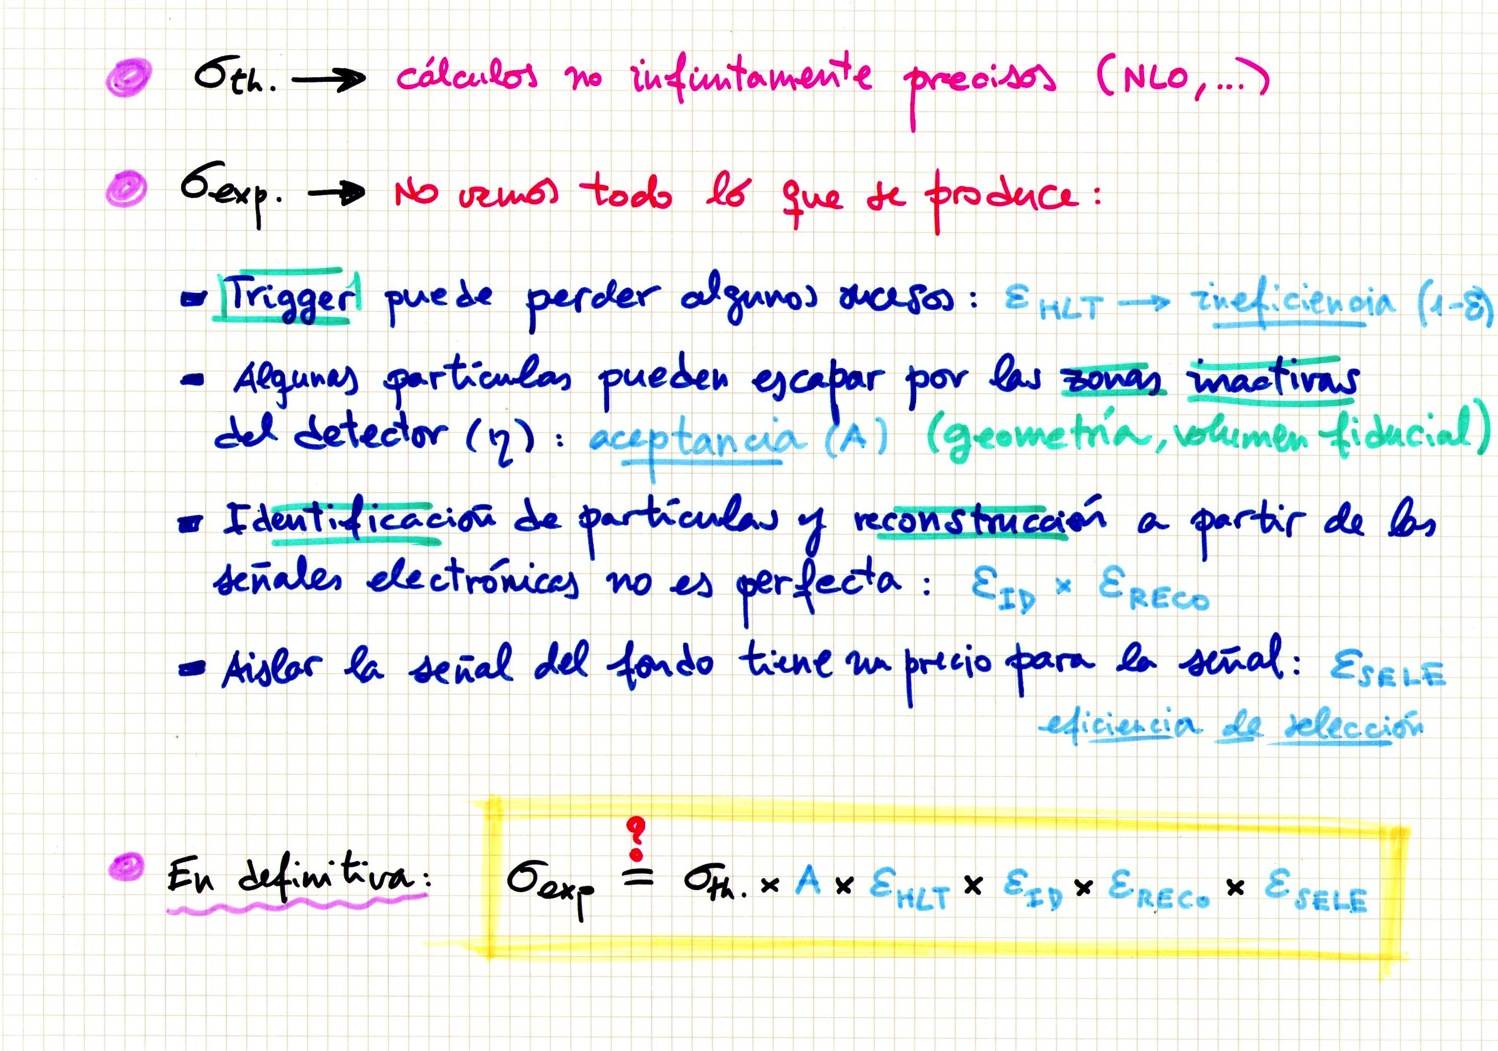 σth. → cálculos no infinitamente precisos (NLO,...)
σexp. → No vemos todo lo que se produce:
- Trigger puede perder algunos sucesos: εHLT → ineficiencia (1-ε)
- Algunas partículas pueden escapar por las zonas inactivas
del detector (η): aceptancia (A) (geometría, volumen fiducial)
- Identificación de partículas y reconstrucción a partir de las
señales electrónicas no es perfecta: εID × εRECO
- Aislar la señal del fondo tiene un precio para la señal: εSELE
eficiencia de selección
?
En definitiva: σexp = σth. × A × εHLT × εID × εRECO × εSELE